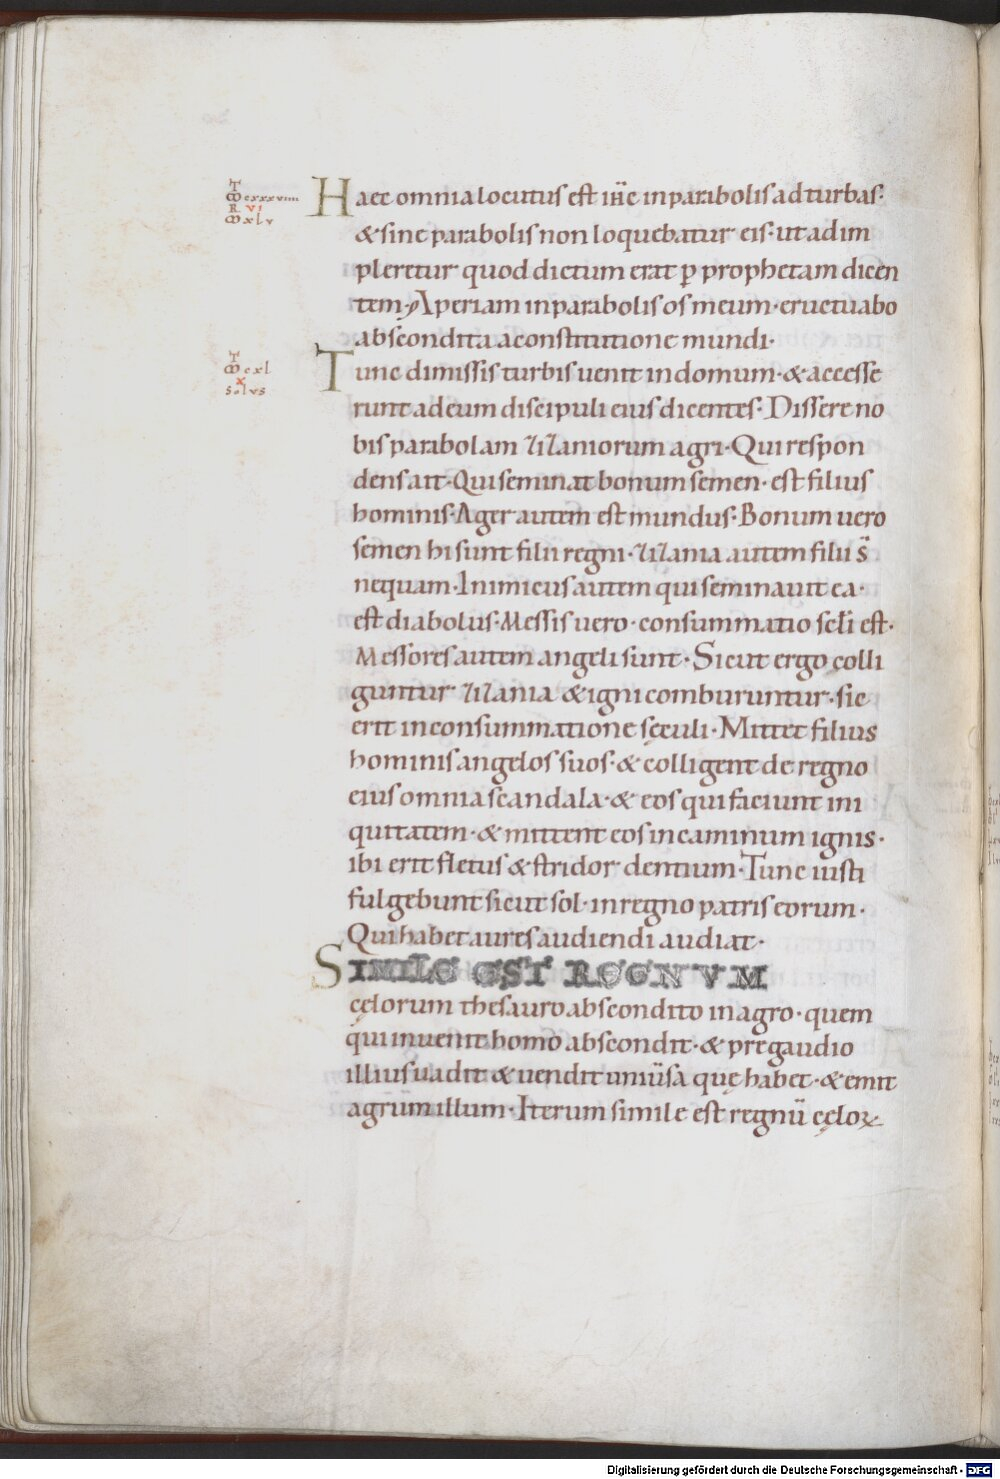 T
M cxxxviiii
R VI
M xlv
Haec omnia locutus est ihc̄ in parabolis ad turbas·
& sine parabolis non loquebatur eis· ut adim
pleretur quod dictum erat ꝑ prophetam dicen
tem· Aperiam in parabolis os meum· eructuabo
abscondita a constitutione mundi·
T
M cxl
X
solus
Tunc dimissis turbis uenit in domum· & accesse
runt ad eum discipuli eius dicentes· Dissere no
bis parabolam zizaniorum agri· Qui respon
dens ait· Qui seminat bonum semen· est filius
hominis· Ager autem est mundus· Bonum uero
semen hi sunt filii regni· zizania autem filii s̄
nequam· Inimicus autem qui seminauit ea·
est diabolus· Messis uero· consummatio scl̄i est·
Messores autem angeli sunt· Sicut ergo colli
guntur zizania & igni comburuntur· sic
erit in consummatione sęculi· Mittet filius
hominis angelos suos· & colligent de regno
eius omnia scandala· & eos qui faciunt ini
quitatem· & mittent eos in caminum ignis·
ibi erit fletus & stridor dentium· Tunc iusti
fulgebunt sicut sol· in regno patris eorum·
Qui habet aures audiendi audiat·
SIMILE EST REGNVM
cęlorum thesauro abscondito in agro· quem
qui inuenit homo abscondit· & pregaudio
illius uadit & uendit uniūsa quę habet· & emit
agrum illum· Iterum simile est regnū cęloꝝ
Digitalisierung gefördert durch die Deutsche Forschungsgemeinschaft - DFG